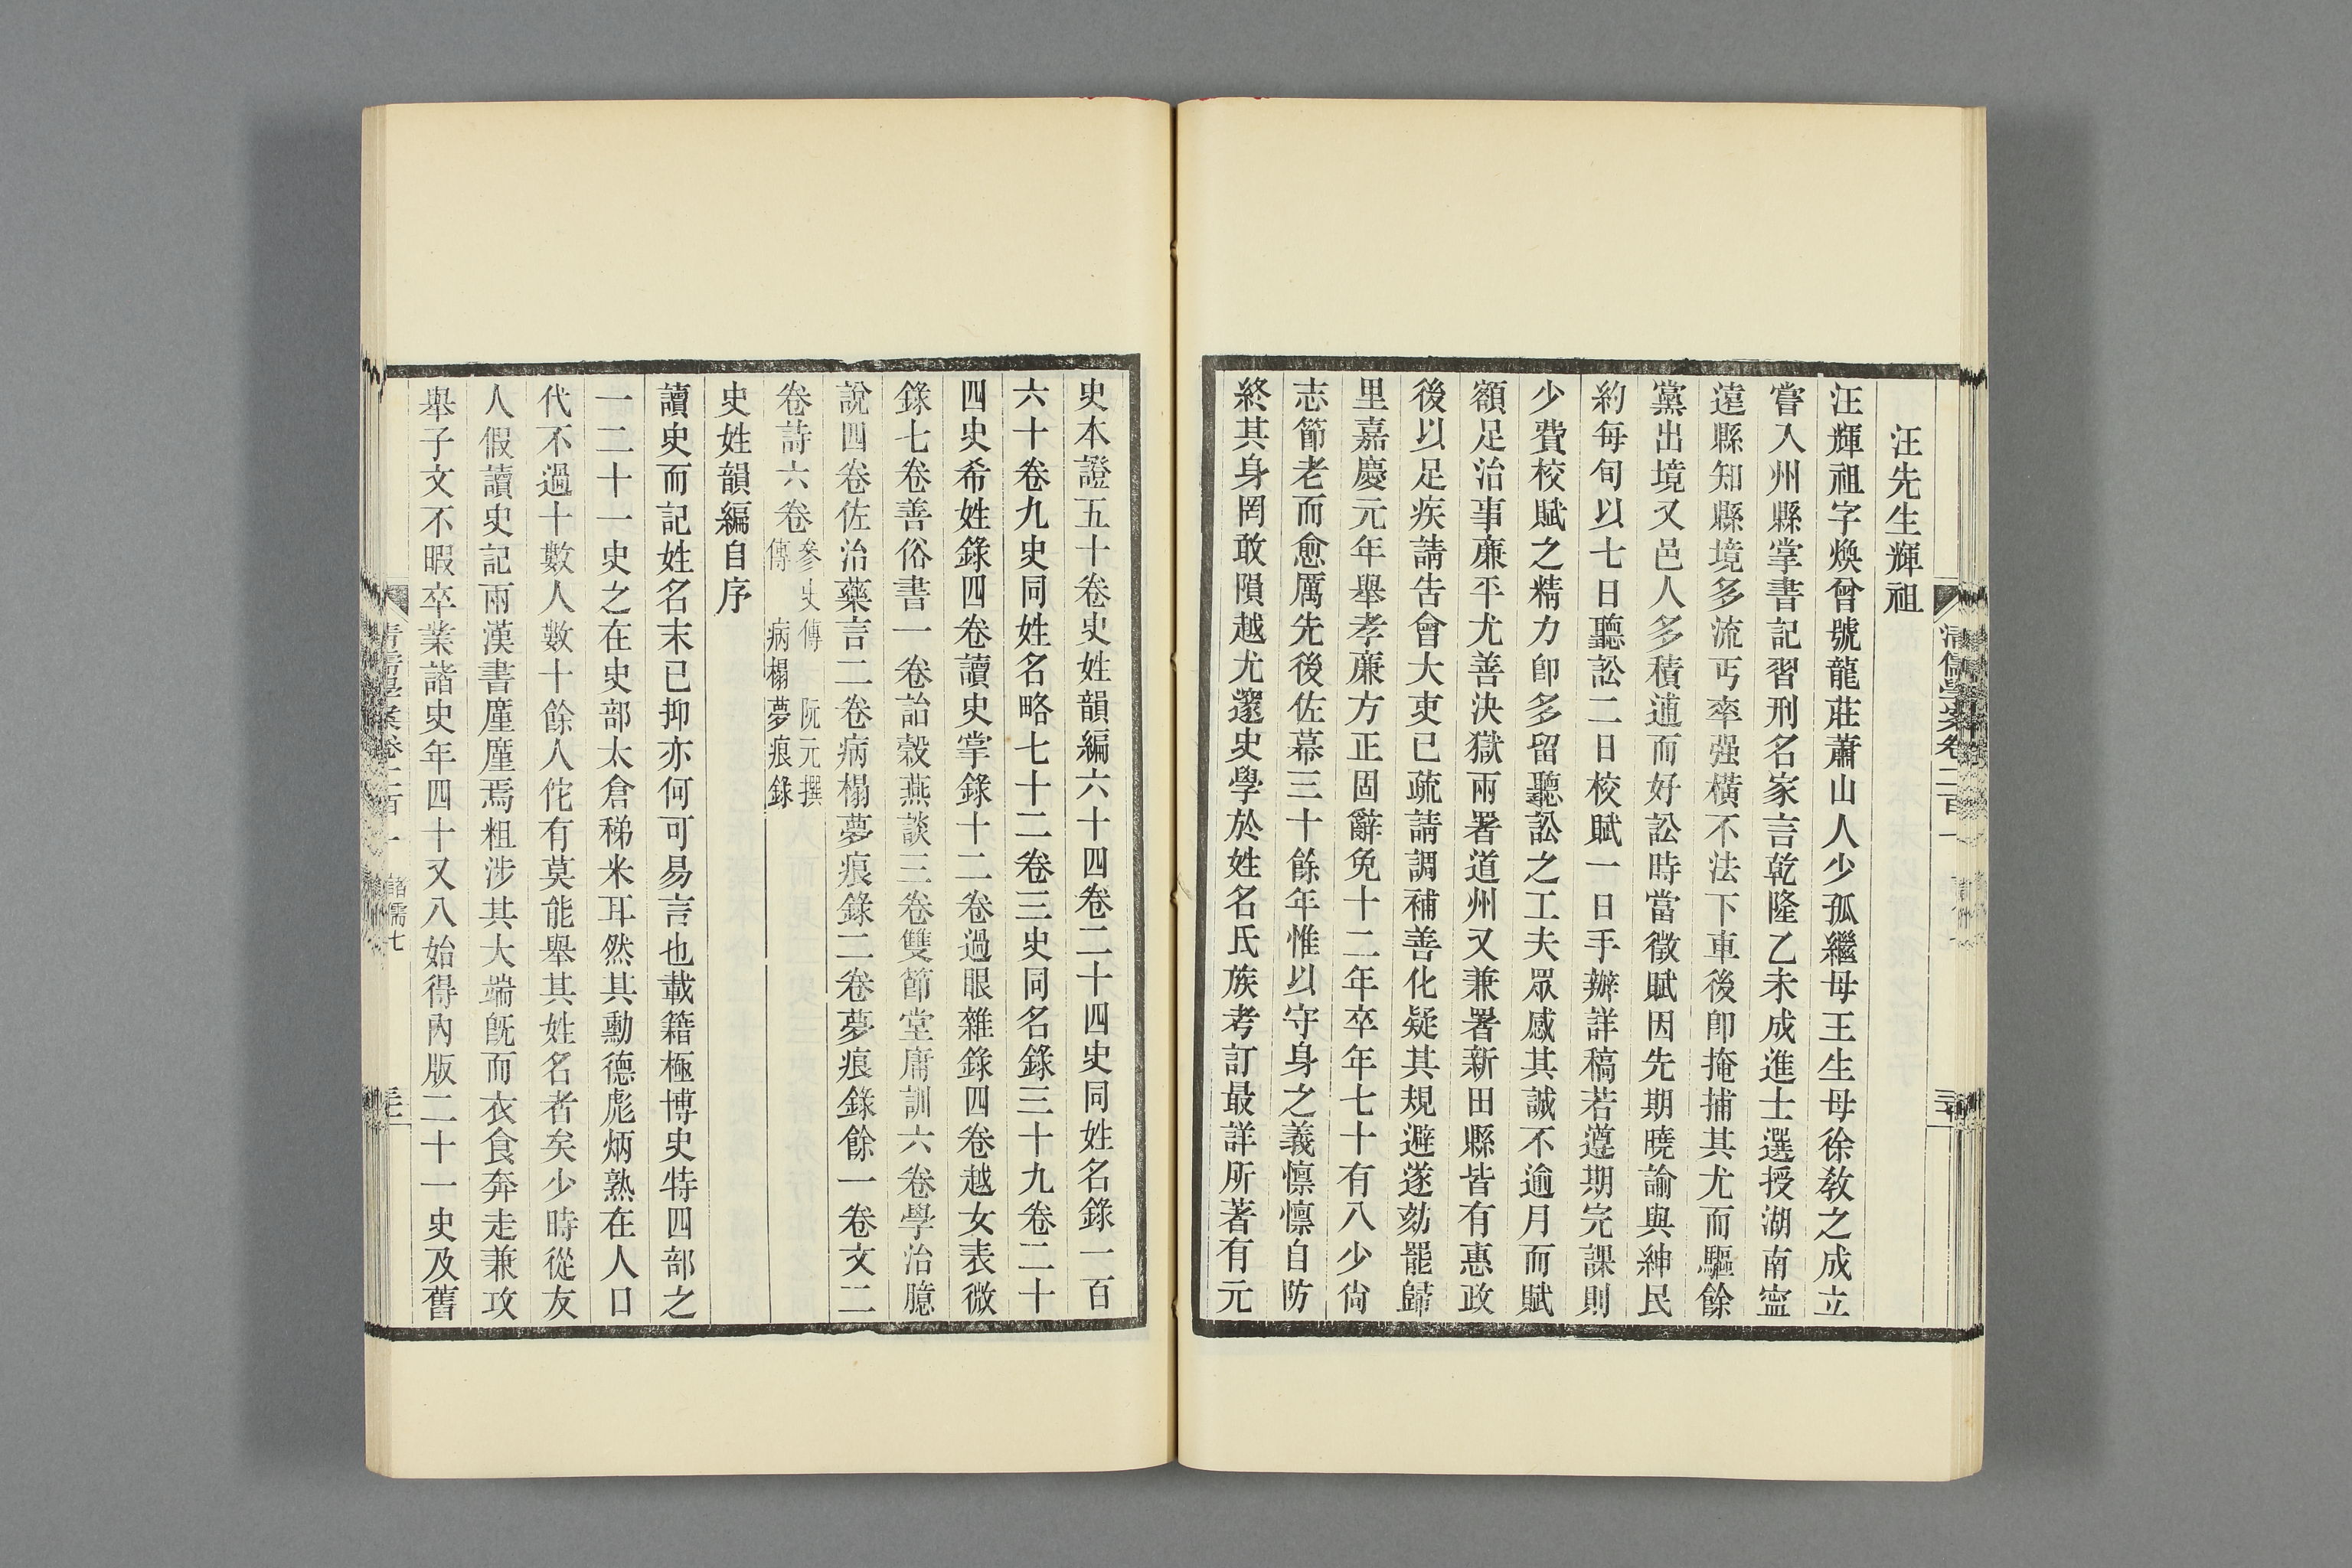 汪先生輝祖
汪輝祖字煥曾號龍莊蕭山人少孤繼母王生母徐敎之成立
嘗入州縣掌書記習刑名家言乾隆乙未成進士選授湖南寍
遠縣知縣境多流丐率强橫不法下車後卽掩捕其尤而驅餘
黨出境又邑人多積逋而好訟時當徵賦因先期曉諭與紳民
約每旬以七日聽訟二日校賦一日手辦詳稿若遵期完課則
少費校賦之精力卽多留聽訟之工夫眾感其誠不逾月而賦
額足治事廉平尤善決獄兩署道州又兼署新田縣皆有惠政
後以足疾請告會大吏已疏請調補善化疑其規避遂劾罷歸
里嘉慶元年舉孝廉方正固辭免十二年卒年七十有八少尙
志節老而愈厲先後佐幕三十餘年惟以守身之義懍懍自防
終其身罔敢隕越尤邃史學於姓名氏族考訂最詳所著有元
史本證五十卷史姓韻編六十四卷二十四史同姓名錄一百
六十卷九史同姓名略七十二卷三史同名錄三十九卷二十
四史希姓錄四卷讀史掌錄十二卷過眼雜錄四卷越女表微
錄七卷善俗書一卷詒穀燕談三卷雙節堂庸訓六卷學治臆
說四卷佐治藥言二卷病榻夢痕錄二卷夢痕錄餘一卷文二
卷詩六卷參史傳 阮元撰
傳 病榻夢痕錄
史姓韻編自序
讀史而記姓名末已抑亦何可易言也載籍極博史特四部之
一二十一史之在史部太倉稊米耳然其勳德彪炳熟在人口
代不過十數人數十餘人佗有莫能舉其姓名者矣少時從友
人假讀史記兩漢書廑廑焉粗涉其大端旣而衣食奔走兼攻
舉子文不暇卒業諸史年四十又八始得內版二十一史及舊
清儒學案卷二百一 諸儒七